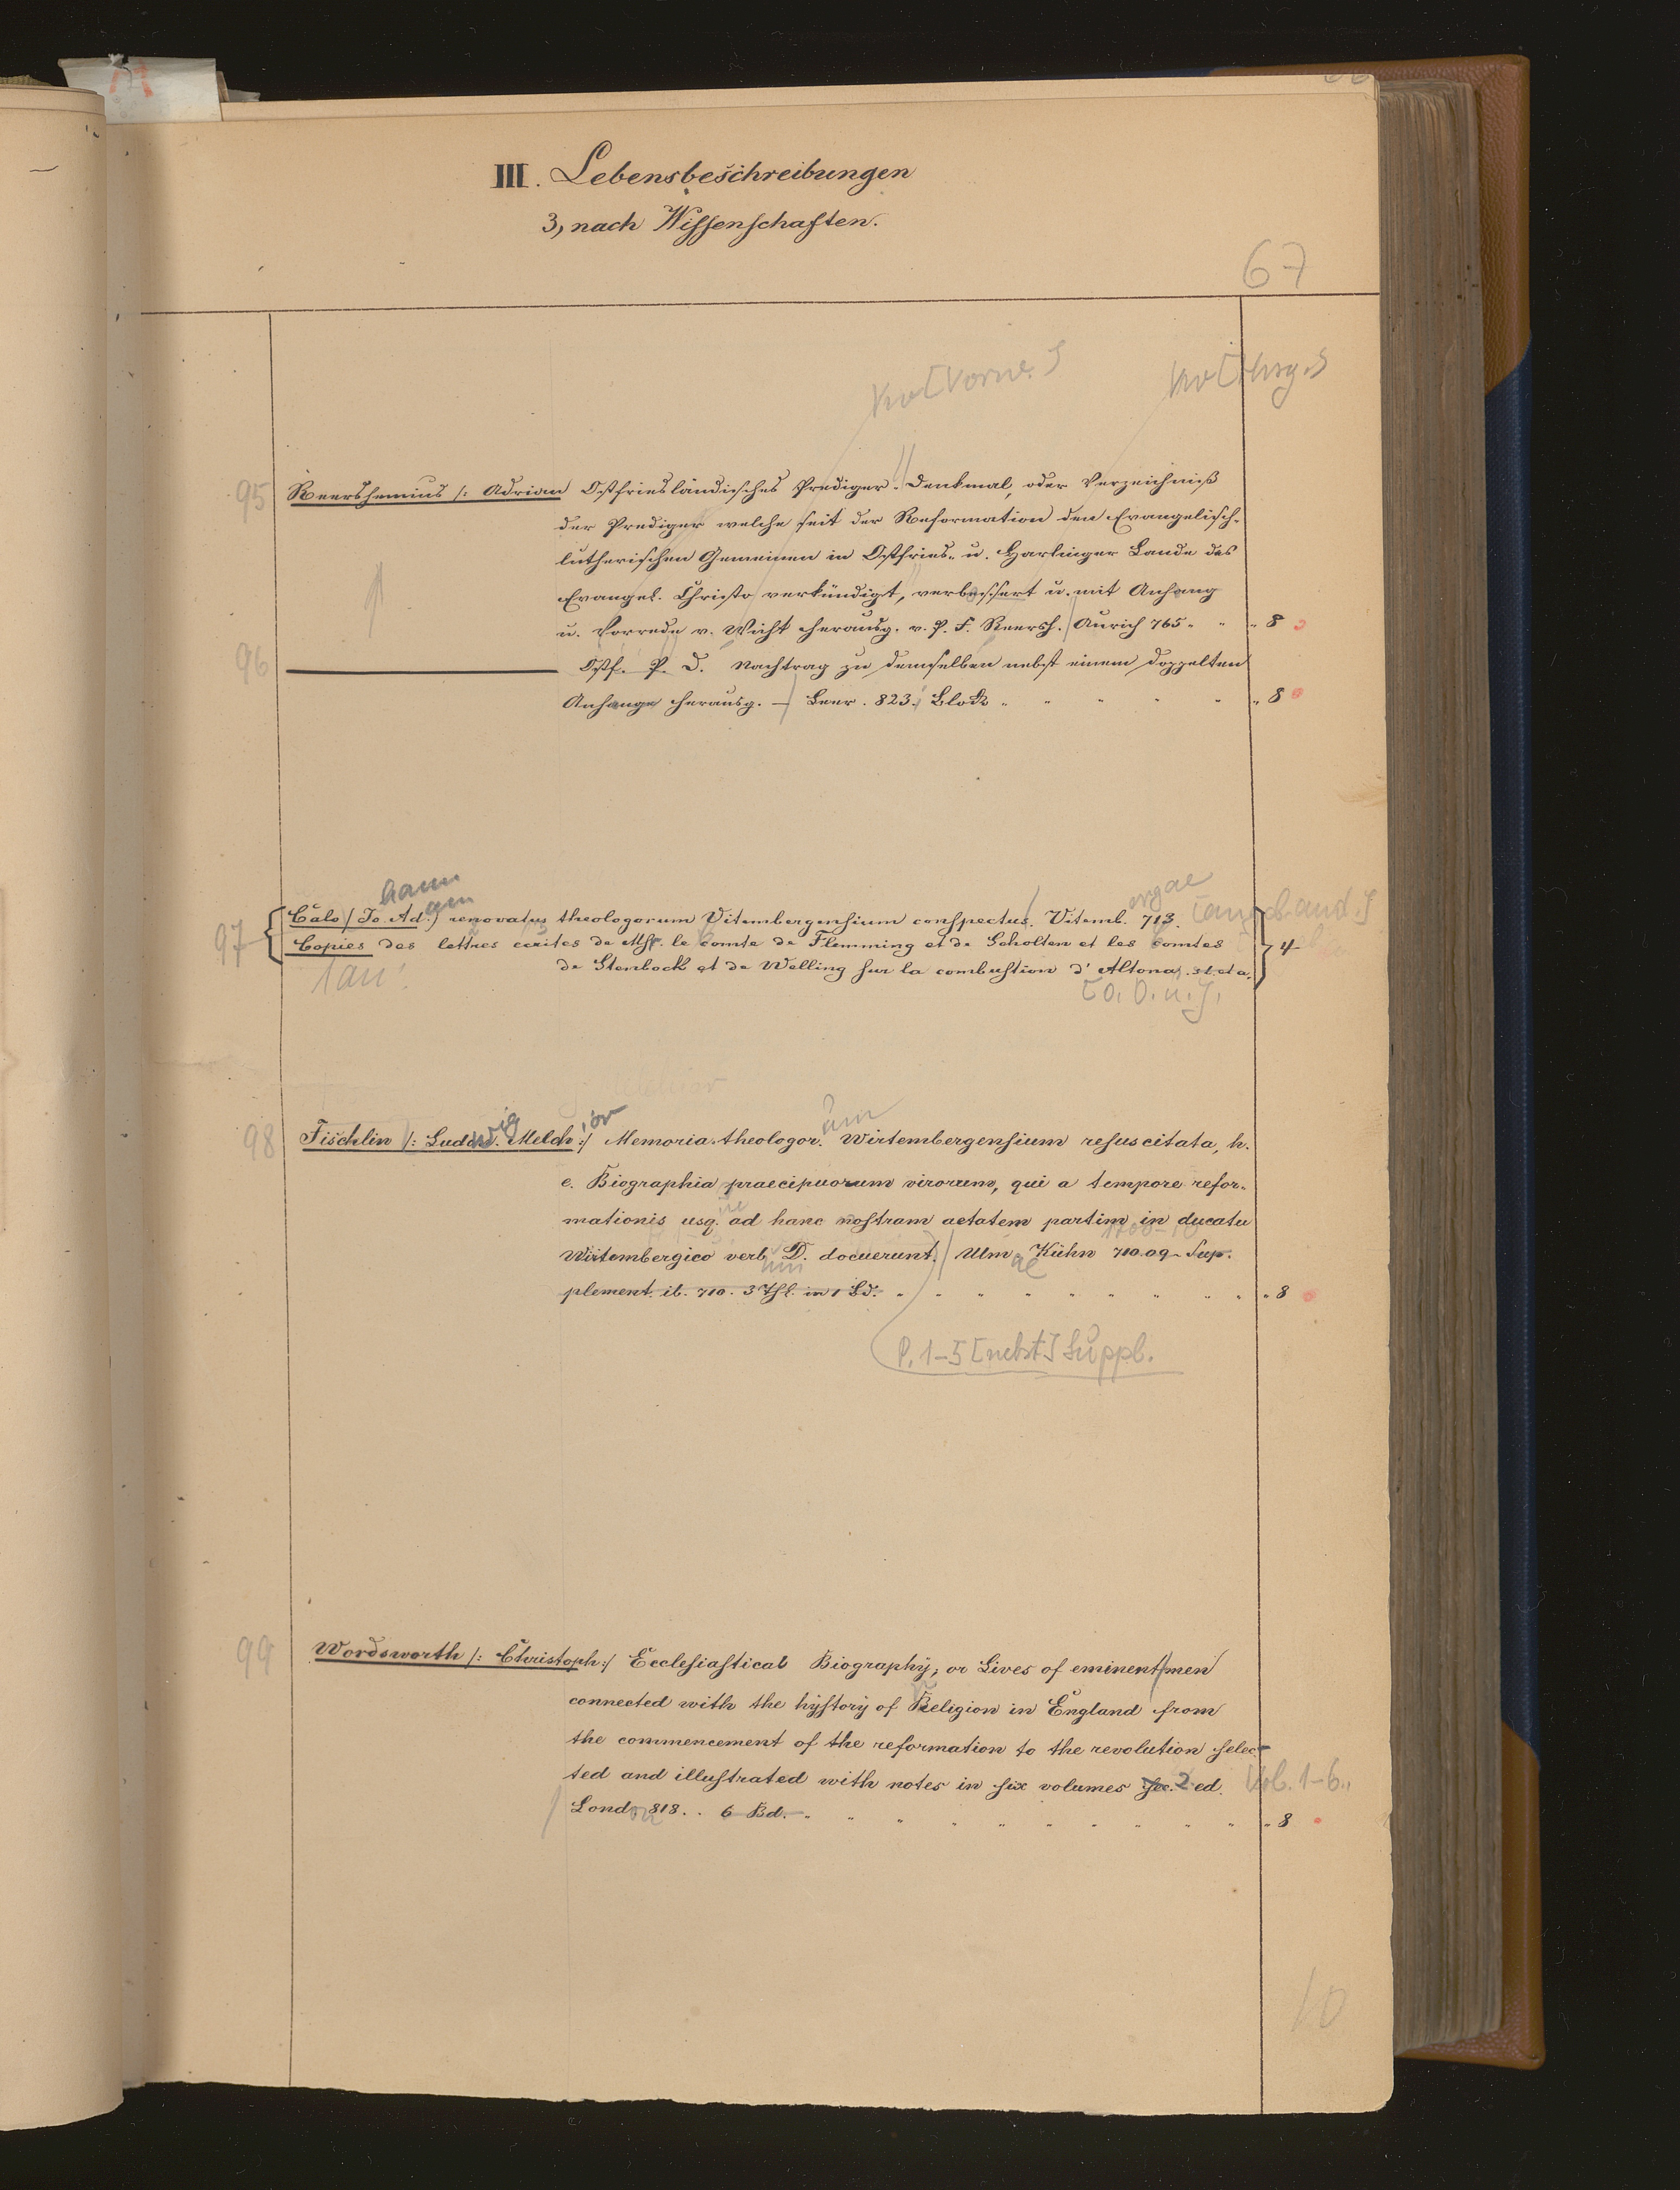 III. Lebensbeschreibungen
3, nach Wissenschaften.
67
Kv [Vorne.]
Kv [Hrsg.]
95 Reershemius /: Adrian Ostfriesländisches Prediger-Denkmal, oder Verzeichniß
der Prediger welche seit der Reformation den Evangelisch-
lutherischen Gemeinen in Ostfries- u. Harlinger Lande das
Evangel. Christo verkündigt, verbessert u. mit Anhang
u. Vorrede v. Wicht herausg. v. P. F. Reersh. Aurich 765 " " " 8
96 Ostf. P. D. Nachtrag zu demselben nebst einem doppelten
Anhange herausg. – Leer. 823. Bloß " " " " " 8
hann am orgae
97 Calo /: Jo. Ad. :/ renovatus theologorum Vitembergensium conspectus. Vitemb. 713. [
Copies des lettres ecrites de Msr. le comte de Flemming et de Scholten et les comtes 4
de Stenbock et de Welling sur la combustion d' Altona. s. l. et a.
[O. O. u. J.
wig ior um
98 Fischlin /: Ludov. Melch :/ Memoria theologor. Wirtembergensium resuscitata, h.
e. Biographia praecipuorum virorum, qui a tempore refor-
mationis usq. ad hanc nostram aetatem partim in ducatu
ue 1709-10
Wirtembergico verb. D. docuerunt. Ulm Kühn 710.09. Sup-
um ae
plement. ib. 710. 3 Thl. in 1 Bd. " " " " " " " " " 8
P. 1-5 [nebst] Suppl.
99 Wordsworth /: Christoph :/ Ecclesiastical Biography, or Lives of eminent men
connected with the hystory of Religion in England from
the commencement of the reformation to the revolution selec-
ted and illustrated with notes in six volumes sec. 2 ed. Vol. 1-6.
Lond. on 818. . 6 Bd. " " " " " " " " " " 8
10